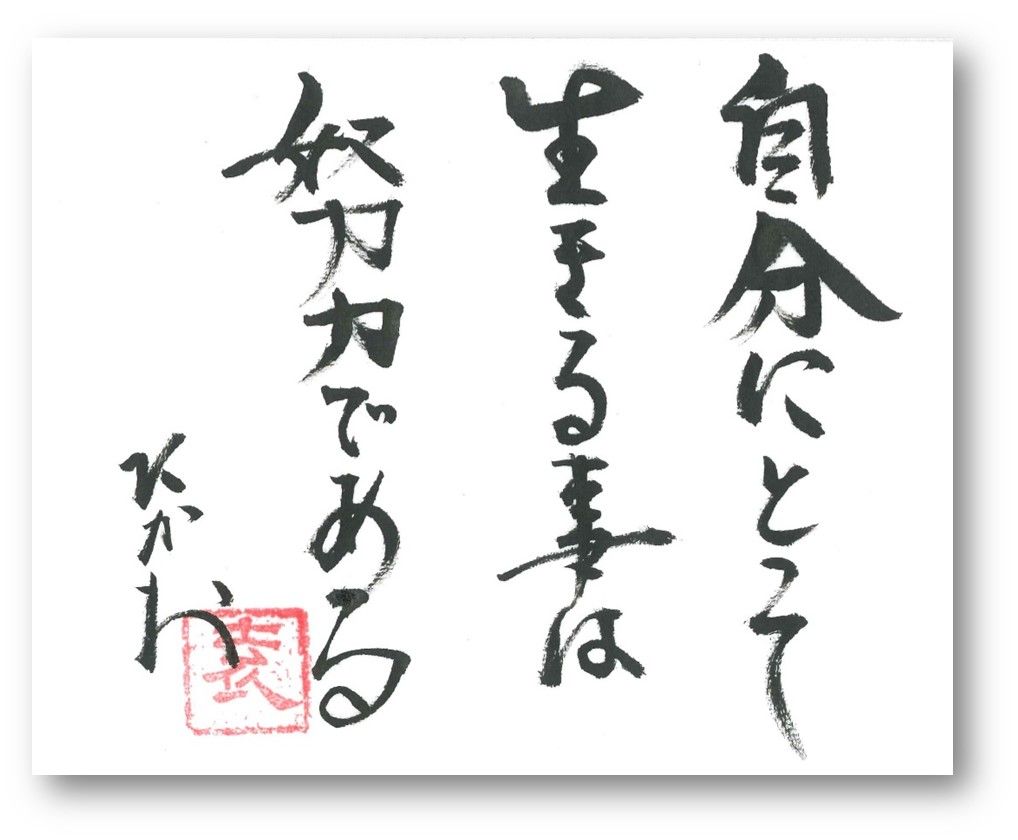 自分にとって
生きる事は
努力である